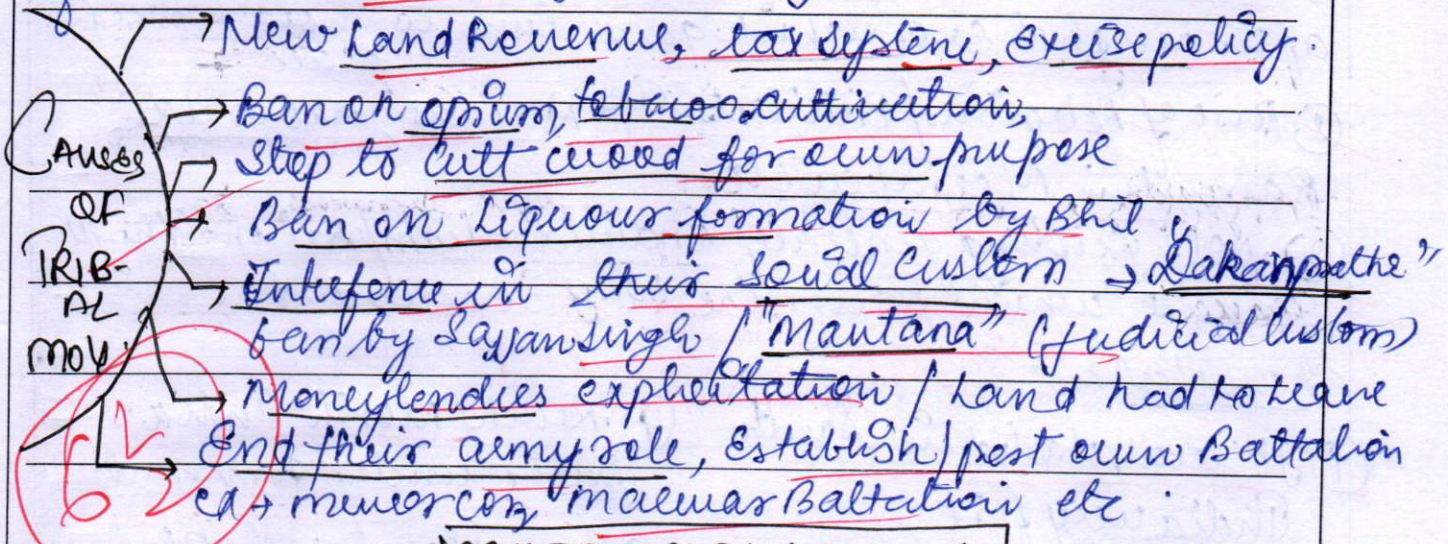 New Land Revenue, tax system, Excise policy.
Ban on opium, tobacoo cultivation,
CAUSES OF TRIB-AL MOV.
Stop to cutt wood for own prupose
Ban on Liquour formation by Bhil
Intefence in their Social Custom → "Dakanprathe"
ban by Sajjansingh / "Mautana" (judicial custom)
Moneylendies exploitation / Land had to leave
End their army role, Establish/ post own Battalion
ex → mewar cor, malwar Battalion etc.